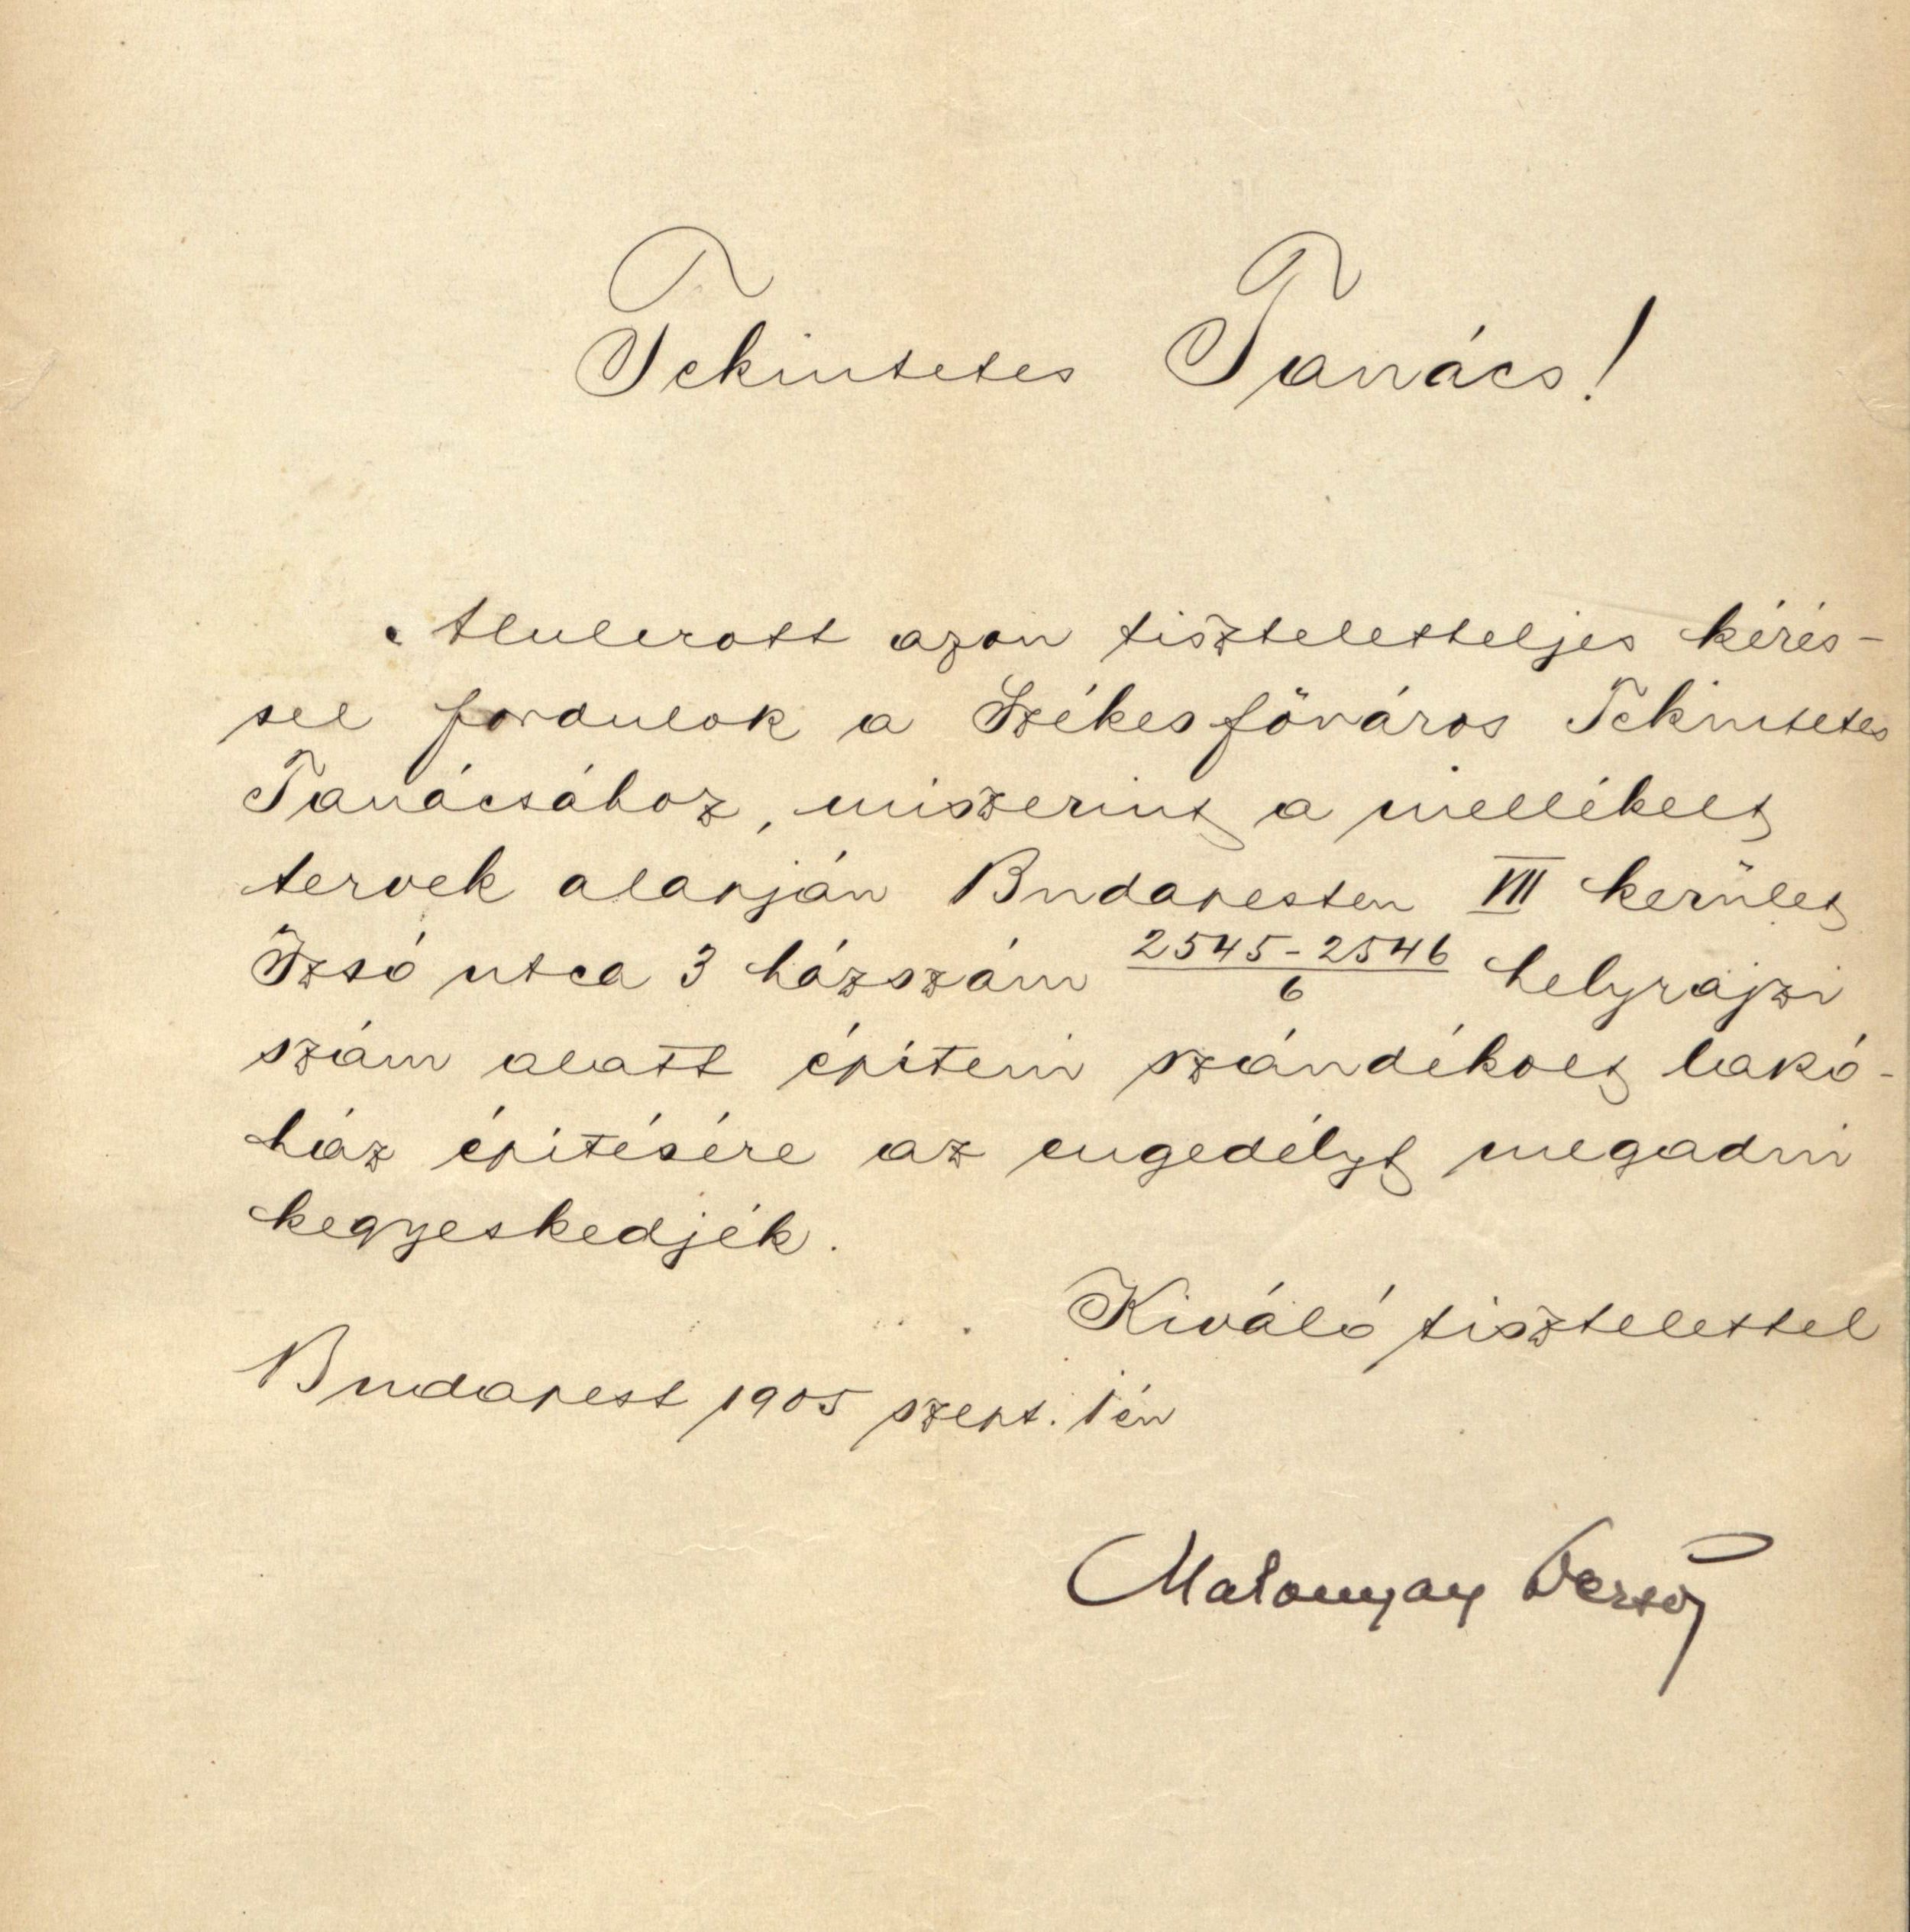 Tekintetes Tanács!
Alulirott azon tiszteletteljes kérés-
sel fordulok a Székesfőváros Tekintetes
Tanácsához, miszerint a mellékelt
tervek alapján Budapesten VII kerület
Izsó utca 3 házszám 2545-2546/6 helyrajzi
szám alatt épiteni szándékolt lakó-
ház épitésére az engedélyt megadni
kegyeskedjék.
Kiváló tisztelettel
Budapest 1905 szept. 1én
Malonyay Dezső